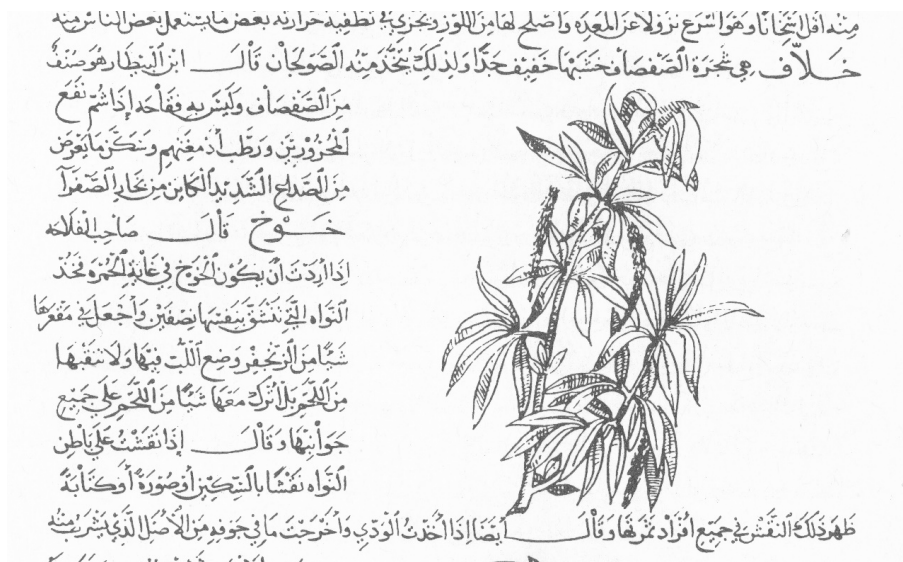 منه اقل اسخانا وهو اسرع نزولا عن المعده واصلح لها من اللوز ويجزى في تطفية حرارته بعض ما يستعمل بعض الناس منه
خلاف هي شجرة الصفصاف خشبها خفيف جدا ولذلك يتخذ منه الصولجان قال ابن البيطار هو صنف
من الصفصاف وليس به فقاحه إذا شم نفع
المحرورين ورطب أدمغتهم وسكن ما يعرض
من الصداع الشديد الكاين من بخار الصفرا
خوخ قال صاحب الفلاحه
إذا اردت أن يكون الخوخ في غاية الحمره فخذ
النواه التي تنشق بنفسها نصفين وأجعل في مقعرها
شيا من الزنجفر وضع اللب فيها ولا تنقيها
من اللحم بل اترك معها شيا من اللحم على جميع
جوانبها وقال إذا نقشت على باطن
النواه نقشا بالسكين أو صورة أو كتابة
ظهر ذلك النقش في جميع افراد ثمرها وقال ايضا إذا اخذت الودي وأخرجت ما في جوفه من الأصل الذي يشرب منه